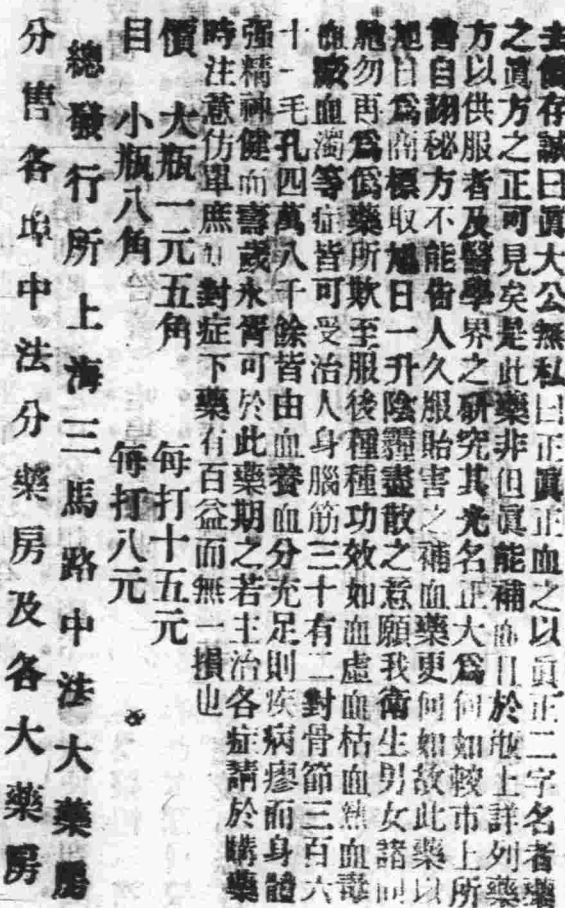 去僞存誠曰眞大公無私曰正眞正血之以眞正二字名者藥
之眞方之正可見矣是此藥非但眞能補血且於瓶上詳列藥
方以供服者及醫學界之研究其光名正大爲何如較市上所
售自詡秘方不能告人久服貽害之補血藥更何如故此藥以
旭日爲商標取旭日一升陰霾盡散之意願我衛生男女諸同
胞勿再爲僞藥所欺至服後種種功效如血虛血枯血熱血毒
血虧血濁等症皆可受治人身腦筋三十有二對骨節三百六
十一毛孔四萬八千餘皆由血養血分充足則疾病瘳而身體
强精神健而壽歲永胥可於此藥期之若主治各症請於購藥
時注意仿單庶幻對症下藥有百益而無一損也
價 大瓶一元五角 每打十五元
目 小瓶八角 每打八元
總發行所 上海三馬路中法大藥房
分售各埠中法分藥房及各大藥房